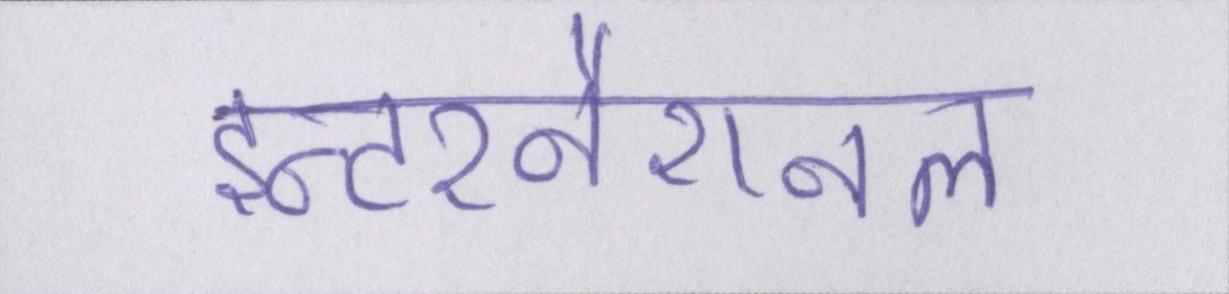 इन्टरनैशनल